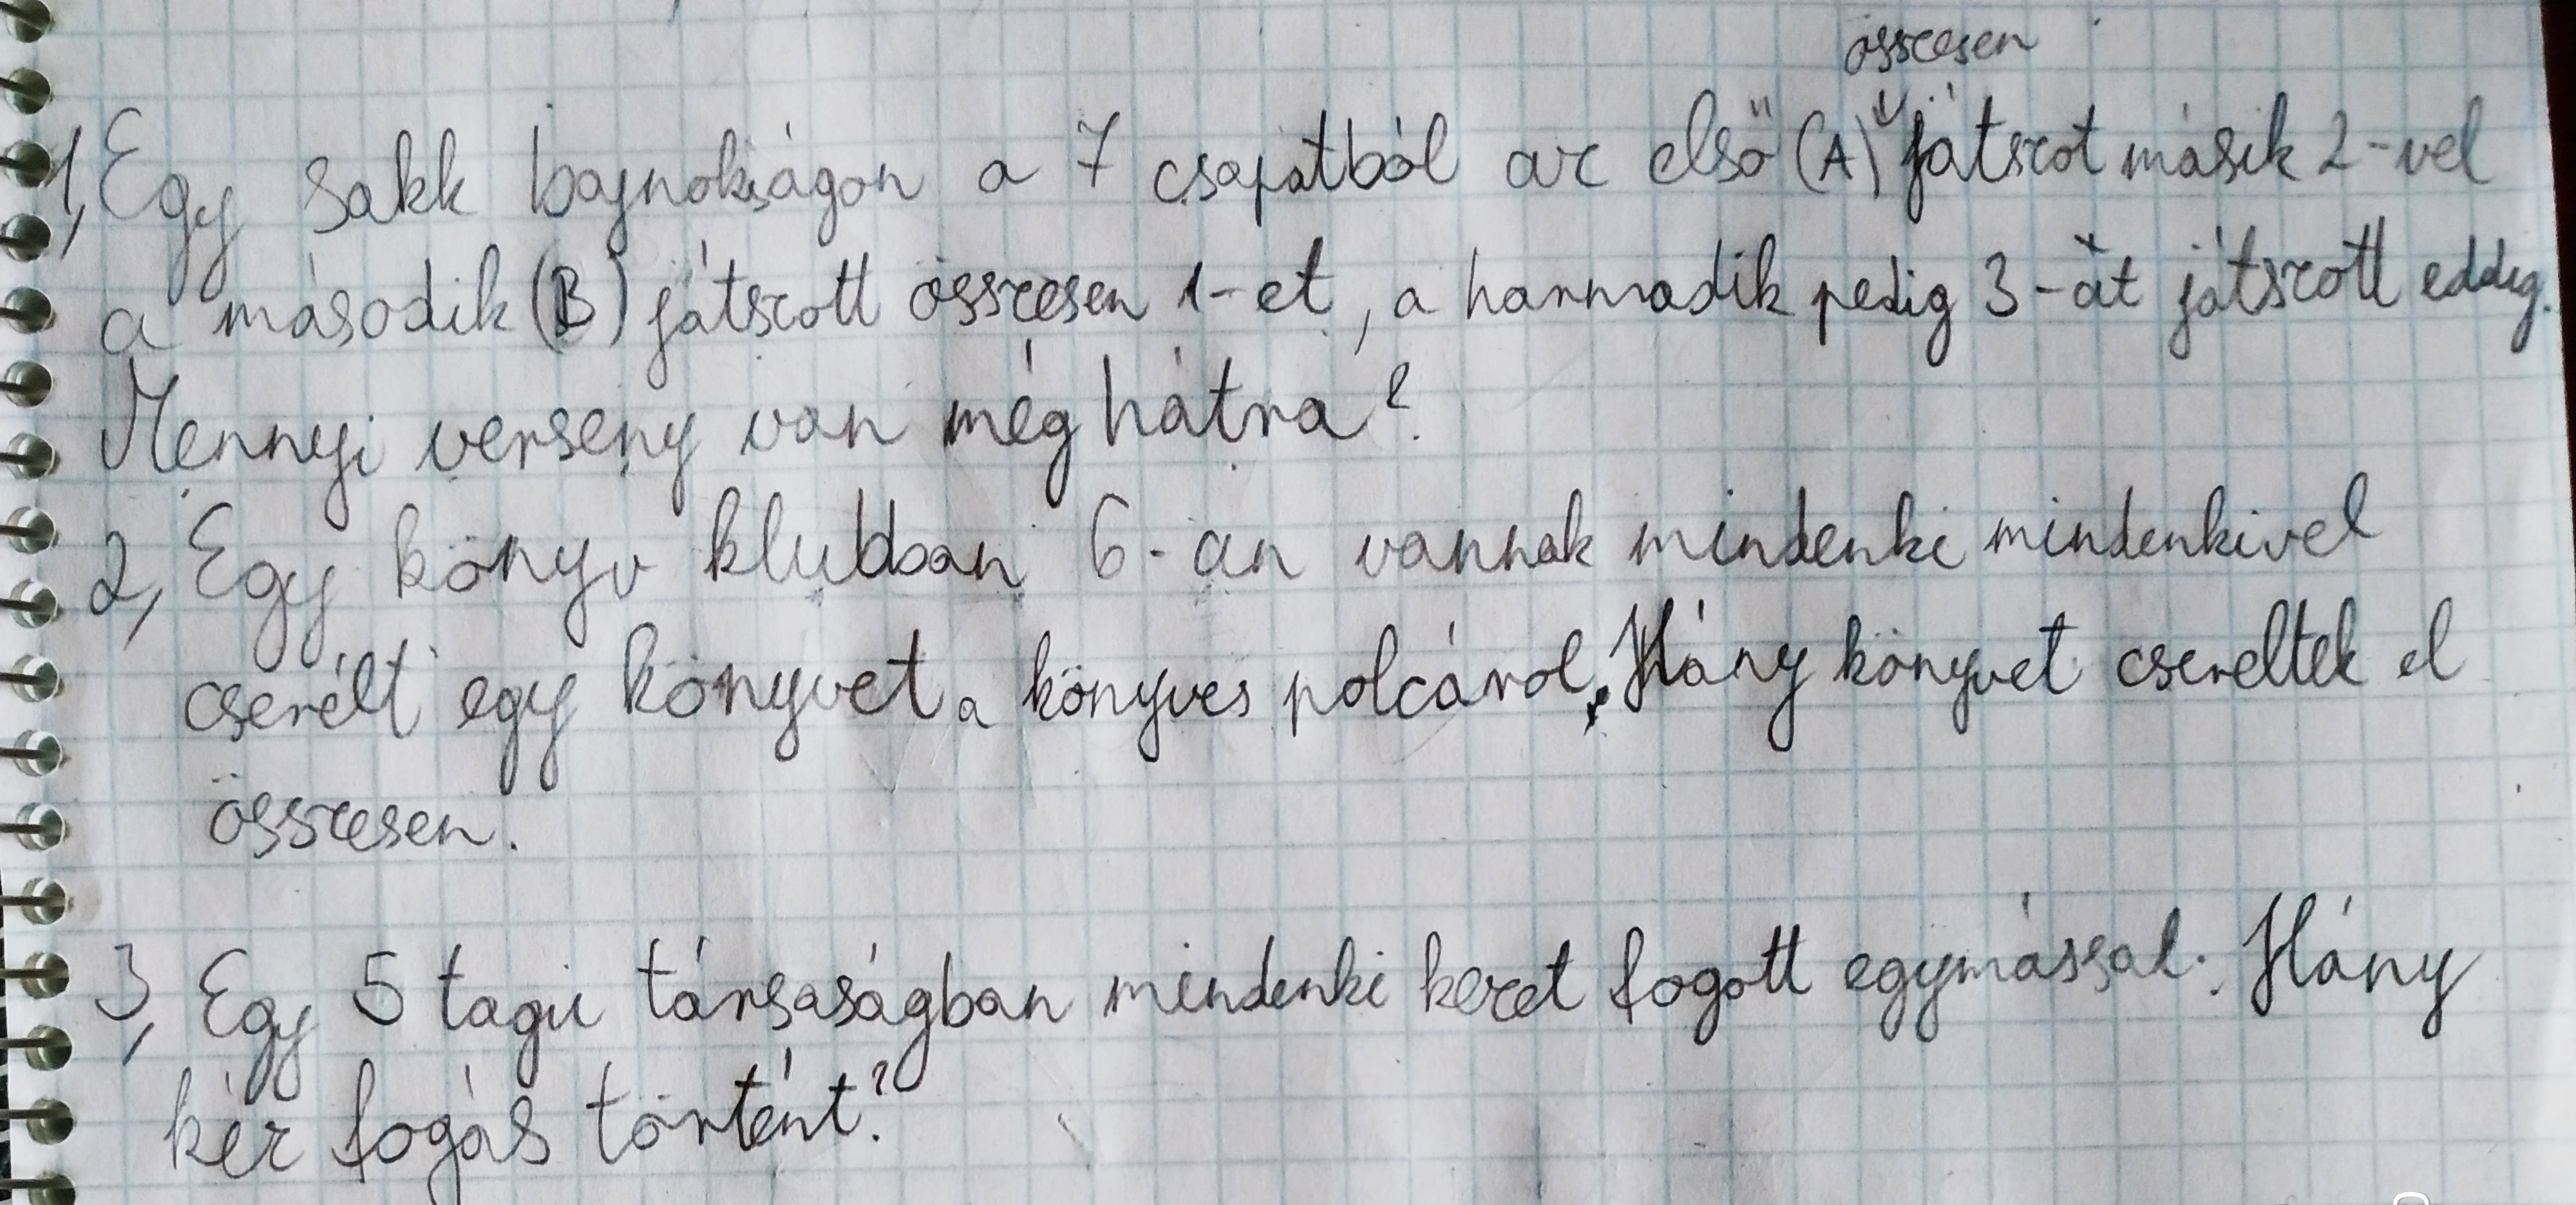 összesen
1, Egy sakk bajnokságon a 7 csapatból az első (A) játszot másik 2-vel
a második (B) játszott összesen 1-et, a harmadik pedig 3-at játszott eddig.
Mennyi verseny van még hátra?
2, Egy könyv klubban 6-an vannak mindenki mindenkivel
cserélt egy könyvet a könyves polcárol. Hány könyvet csereltek el
összesen.
3, Egy 5 tagu társaságban mindenki kezet fogott egymással. Hány
kéz fogás történt?